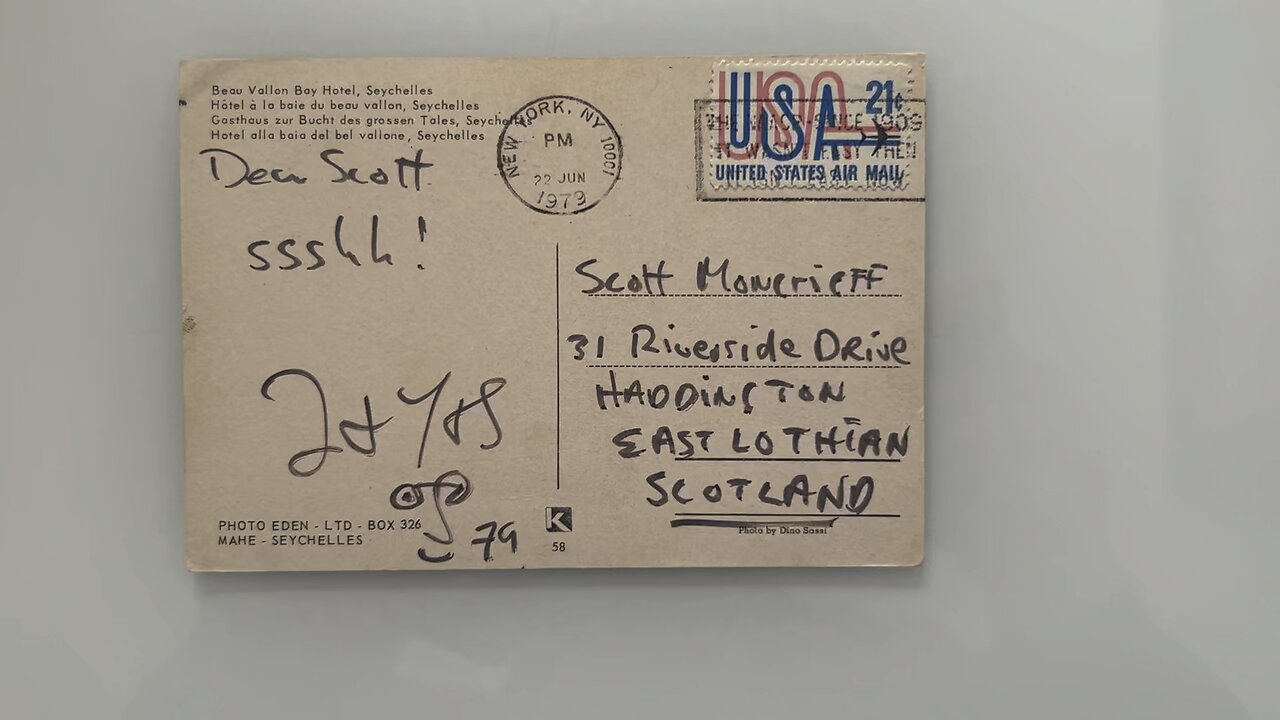 Beau Vallon Bay Hotel, Seychelles
Hôtel à la baie du beau vallon, Seychelles
Gasthaus zur Bucht des grossen Tales, Seychelles
Hotel alla baia del bel vallone, Seychelles
NEW YORK, NY 10001
PM
22 JUN
1979
USA 21c
UNITED STATES AIR MAIL
THE NAACP-SINCE 1909
IT WASN'T EASY THEN
Dear Scott
ssshh!
Scott Moncrieff
31 Riverside Drive
HADDINGTON
EAST LOTHIAN
SCOTLAND
79
PHOTO EDEN - LTD - BOX 326
MAHE - SEYCHELLES
K
58
Photo by Dino Sassi